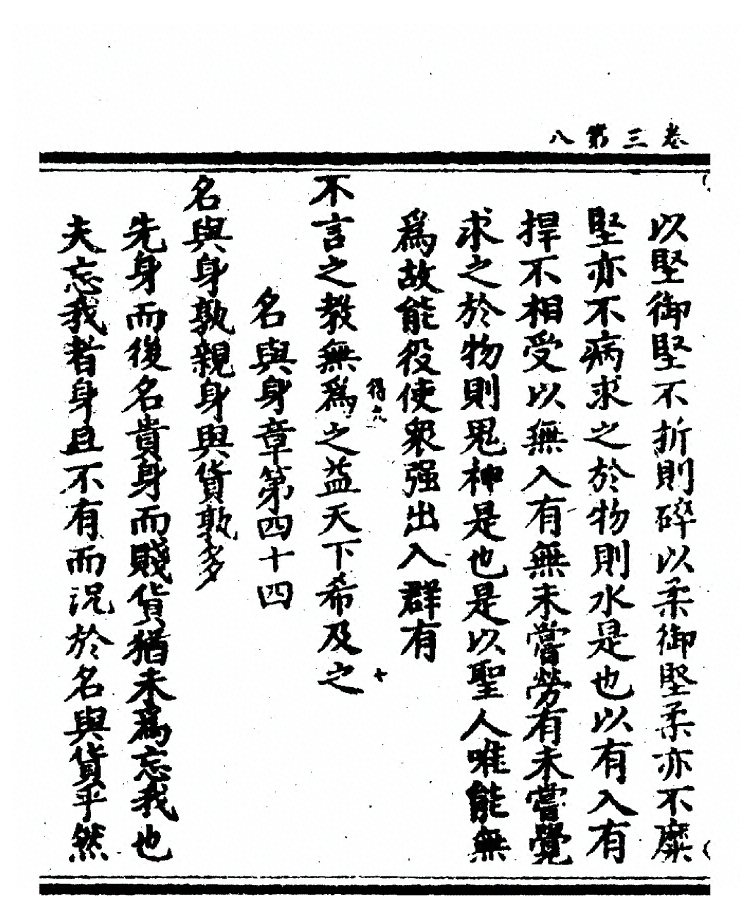 卷三第八
以堅御堅不折則碎以柔御堅柔亦不糜
堅亦不病求之於物則水是也以有入有
捍不相受以無入有無未嘗勞有未嘗覺
求之於物則鬼神是也是以聖人唯能無
爲故能役使衆强出入群有
不言之教無爲之益天下希及之
名與身章第四十四
名與身孰親身與貨孰多
先身而後名貴身而賤貨猶未爲忘我也
夫忘我者身且不有而況於名與貨乎然